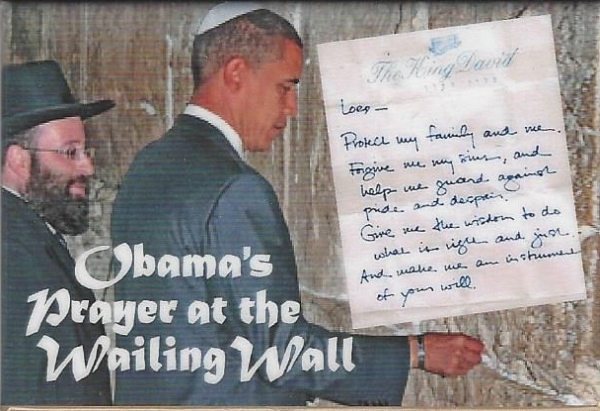 The King David
Lord —
Protect my family and me.
Forgive me my sins, and
help me guard against
pride and despair.
Give me the wisdom to do
what is right and just.
And make me an instrument
of your will.
Obama's
Prayer at the
Wailing Wall